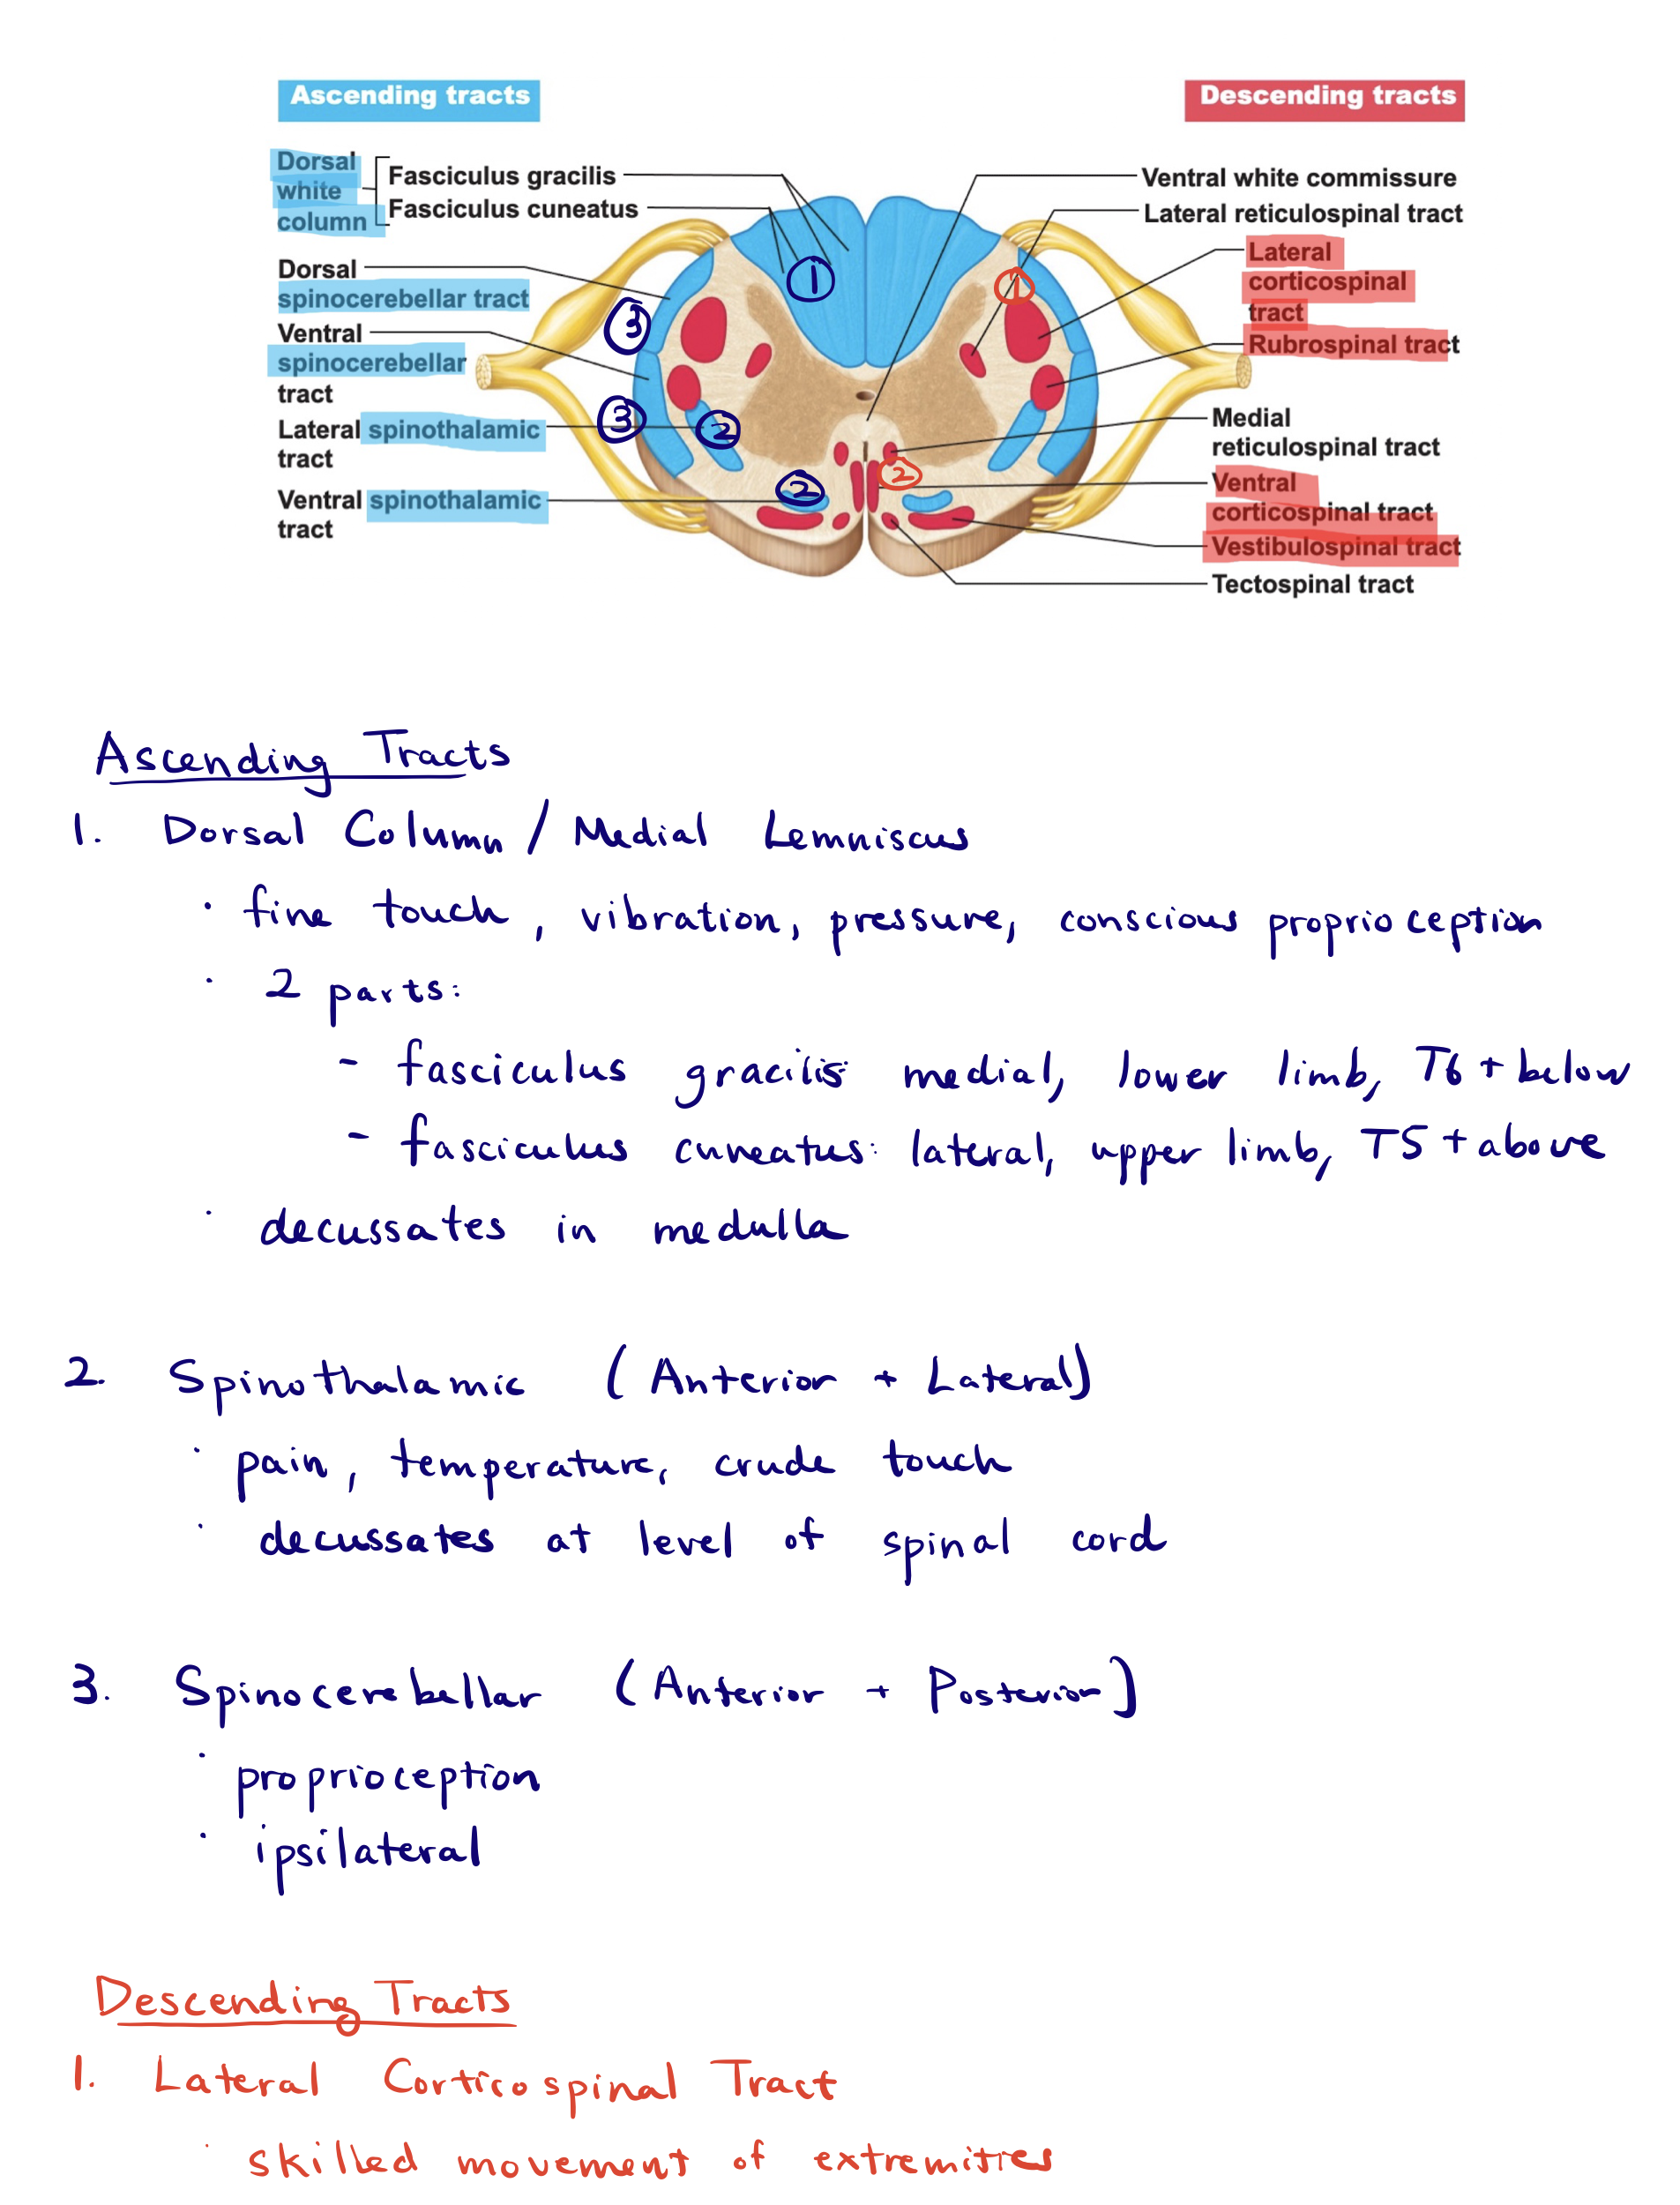 Ascending tracts
Descending tracts
Dorsal
white
column
Fasciculus gracilis
Fasciculus cuneatus
Dorsal
spinocerebellar tract
Ventral
spinocerebellar
tract
Lateral spinothalamic
tract
Ventral spinothalamic
tract
1
3
3
2
2
1
2
Ventral white commissure
Lateral reticulospinal tract
Lateral
corticospinal
tract
Rubrospinal tract
Medial
reticulospinal tract
Ventral
corticospinal tract
Vestibulospinal tract
Tectospinal tract
Ascending Tracts
1. Dorsal Column / Medial Lemniscus
· fine touch, vibration, pressure, conscious proprioception
· 2 parts:
- fasciculus gracilis: medial, lower limb, T6 + below
- fasciculus cuneatus: lateral, upper limb, T5 + above
· decussates in medulla
2. Spinothalamic (Anterior + Lateral)
· pain, temperature, crude touch
· decussates at level of spinal cord
3. Spinocerebellar (Anterior + Posterior)
· proprioception
· ipsilateral
Descending Tracts
1. Lateral Corticospinal Tract
· skilled movement of extremities